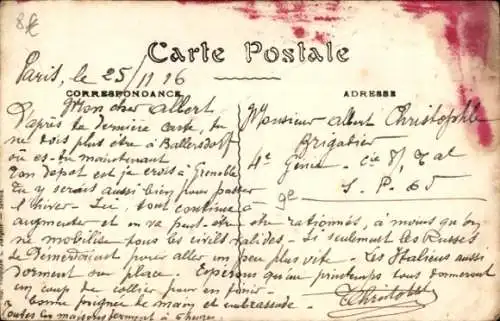 8€
Carte Postale
Paris, le 25/11 16
CORRESPONDANCE
ADRESSE
Mon cher Albert
D'après ta dernière carte, tu
ne dois plus être à Ballersdorf
où es-tu maintenant
Ton depot est je crois à Grenoble
tu y serais aussi bien pour passer
l'hiver - Ici, tout continue à
augmenter et on va peut-être
Monsieur Albert Christophle
Brigadier
4e Génie - Cie 8/
S. P. 65
être rationnés, à moins qu'on
ne mobilise tous les civils valides - Si seulement les Russes
se démerdaient pour aller un peu plus vite - Les Italiens aussi
dorment sur place. Espérons qu'au printemps tous donneront
un coup de collier pour en finir -
Bonne poignée de main et embrassade -
toutes les maisons ferment à 6 heures